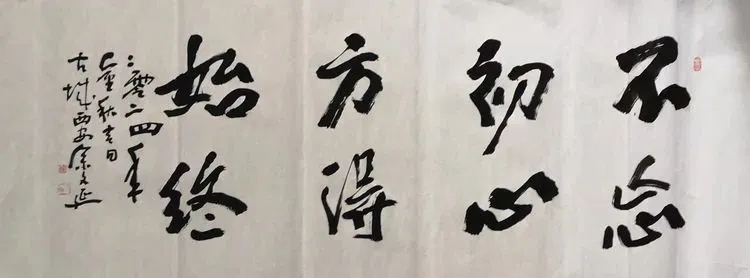 不忘
初心
方得
始终
二零二四年
金秋吉日
古城西安